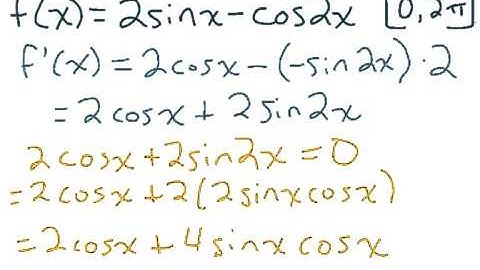 f(x) = 2sinx - cos2x [0, 2π]
f'(x) = 2cosx - (-sin2x)·2
= 2cosx + 2sin2x
2cosx + 2sin2x = 0
= 2cosx + 2(2sinxcosx)
= 2cosx + 4sinxcosx